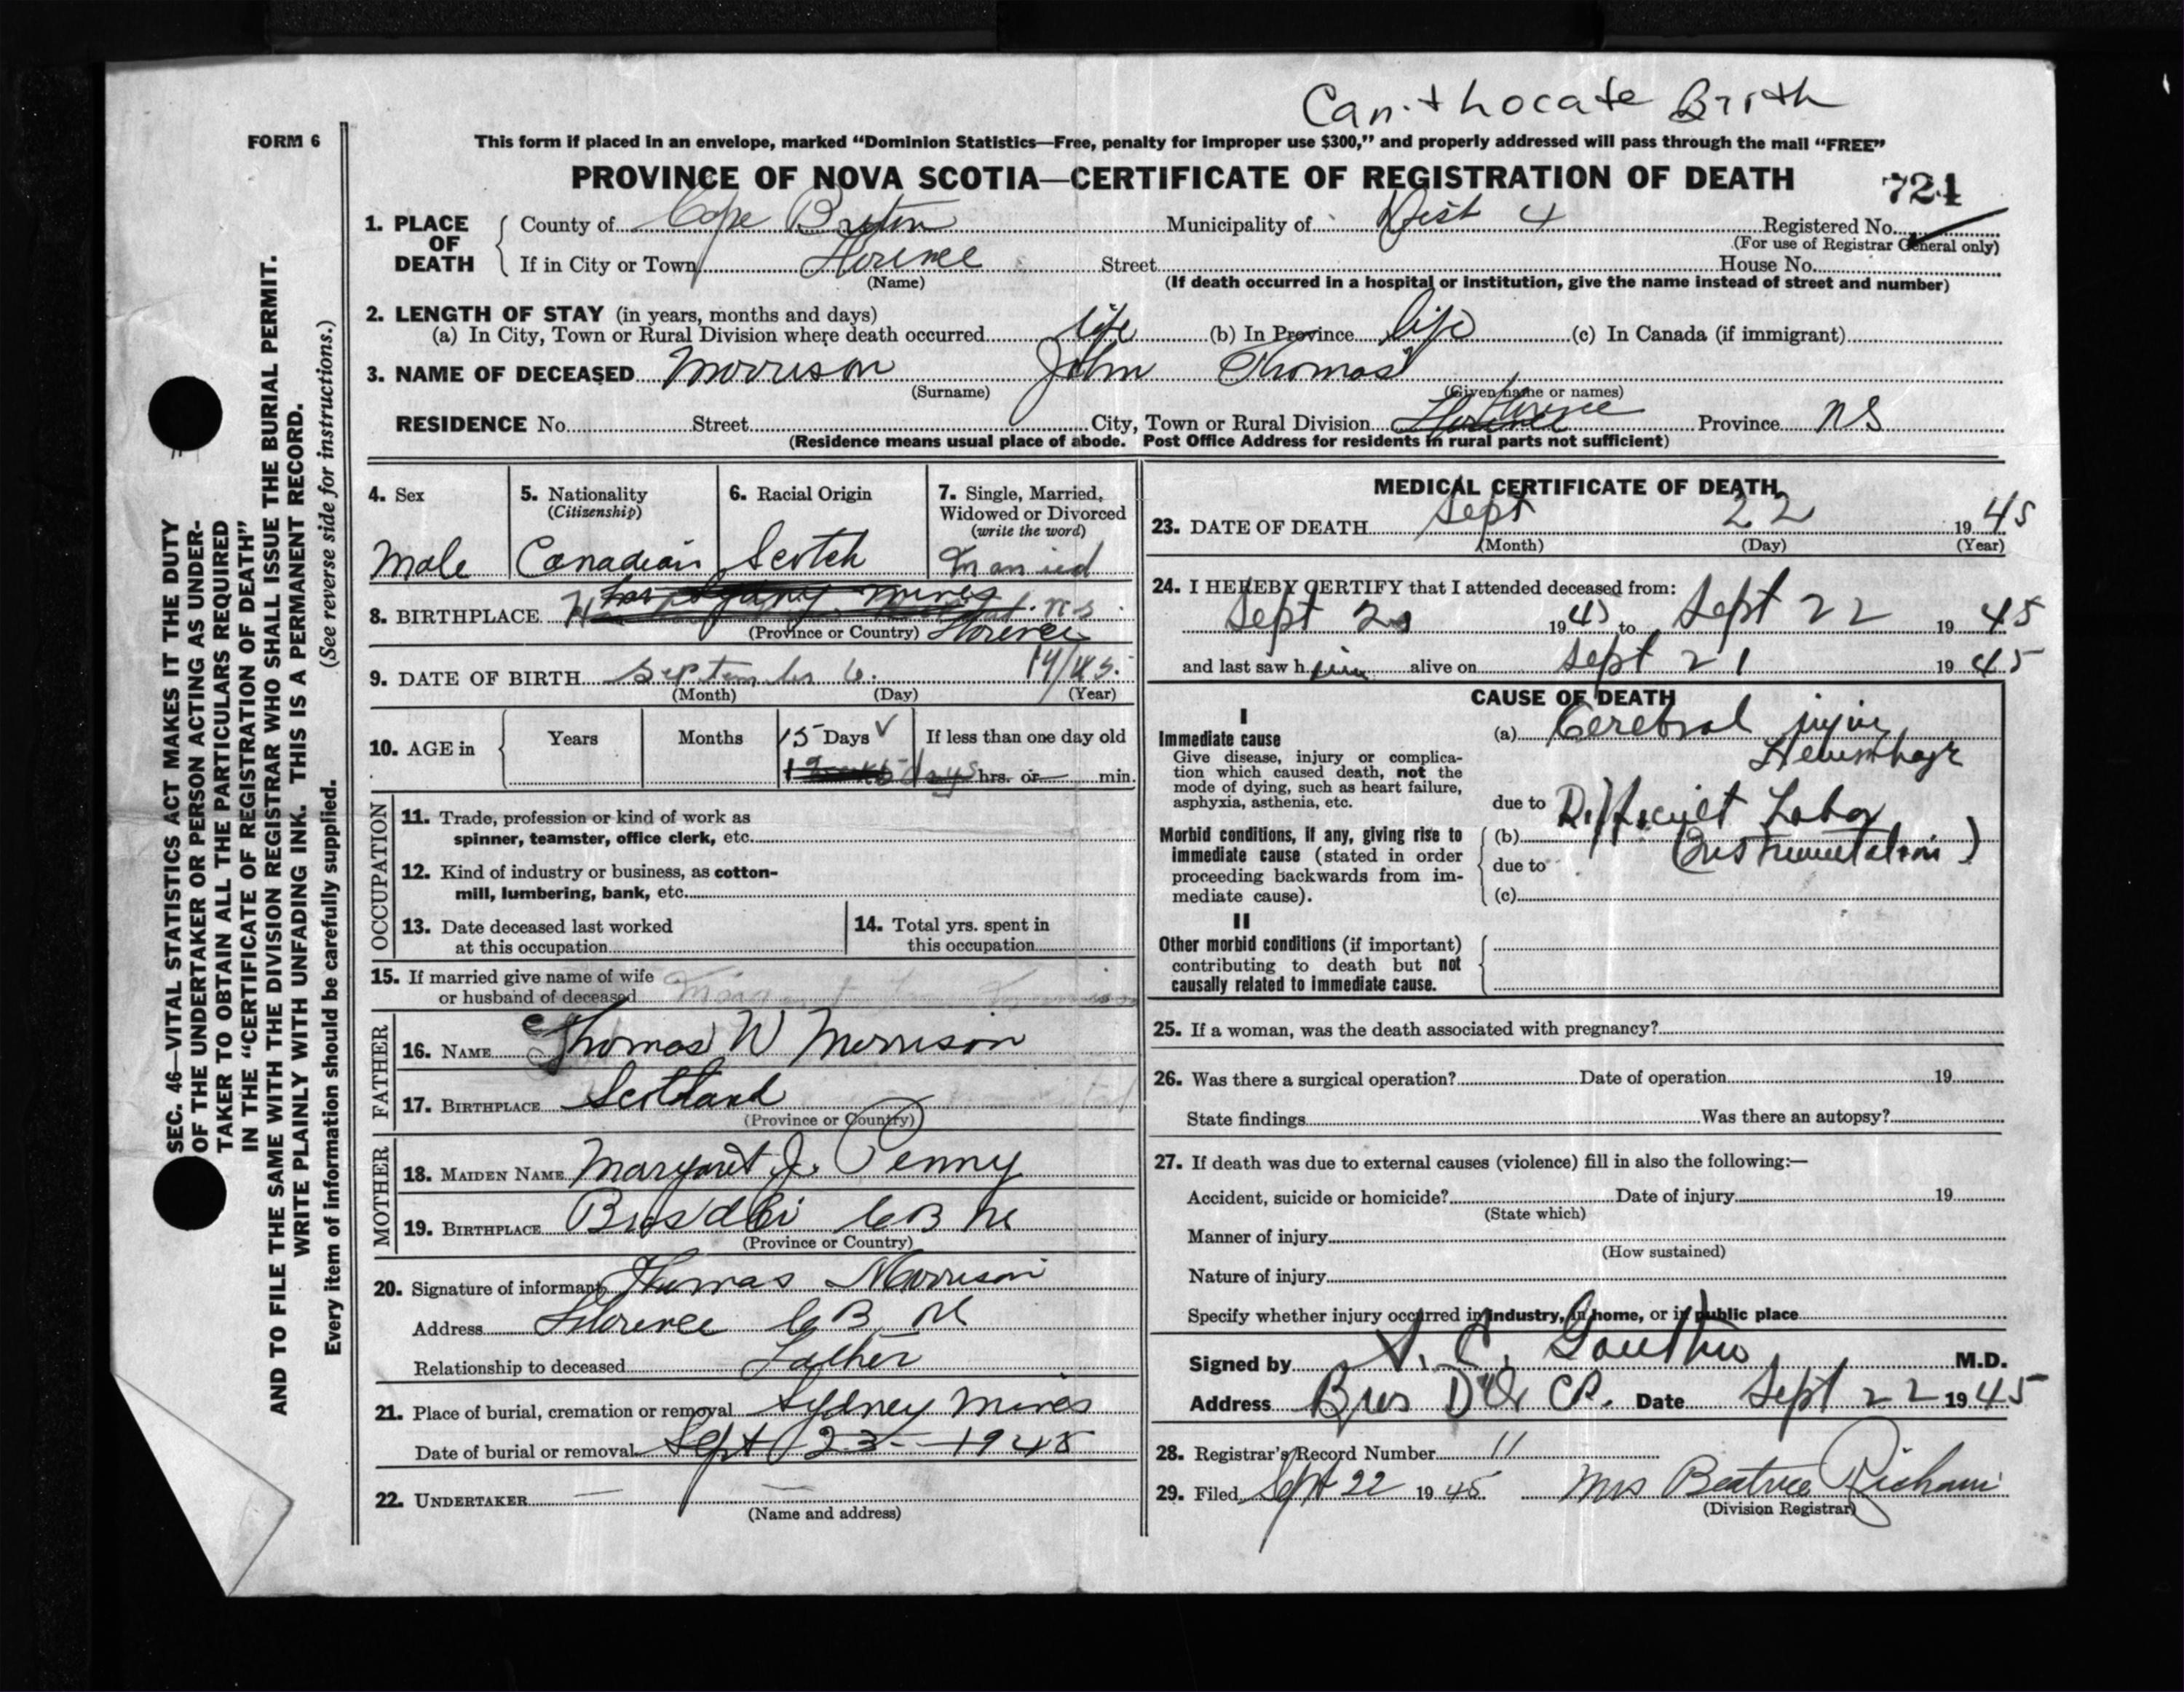 Can't Locate Birth
FORM 6
This form if placed in an envelope, marked "Dominion Statistics—Free, penalty for improper use $300," and properly addressed will pass through the mail "FREE"
PROVINCE OF NOVA SCOTIA—CERTIFICATE OF REGISTRATION OF DEATH
724
1. PLACE OF DEATH County of Cape Breton Municipality of Dist 4 Registered No.
(For use of Registrar General only)
If in City or Town Florence Street House No.
(Name) (If death occurred in a hospital or institution, give the name instead of street and number)
2. LENGTH OF STAY (in years, months and days)
(a) In City, Town or Rural Division where death occurred life (b) In Province life (c) In Canada (if immigrant)
3. NAME OF DECEASED Morrison John Thomas
(Surname) (Given name or names)
RESIDENCE No. Street City, Town or Rural Division Florence Florence Province NS
(Residence means usual place of abode. Post Office Address for residents in rural parts not sufficient)
4. Sex
Male
5. Nationality
(Citizenship)
Canadian
6. Racial Origin
Scotch
7. Single, Married,
Widowed or Divorced
(write the word)
Married
8. BIRTHPLACE Sydney Mines N.S
(Province or Country) Florence
9. DATE OF BIRTH September 6. 19/45.
(Month) (Day) (Year)
10. AGE in Years Months 15 Days If less than one day old
days hrs. or min.
OCCUPATION
11. Trade, profession or kind of work as
spinner, teamster, office clerk, etc.
12. Kind of industry or business, as cotton-
mill, lumbering, bank, etc.
13. Date deceased last worked
at this occupation
14. Total yrs. spent in
this occupation
15. If married give name of wife
or husband of deceased
FATHER
16. NAME Thomas W Morrison
17. BIRTHPLACE Scotland
(Province or Country)
MOTHER
18. MAIDEN NAME Margaret J. Penny
19. BIRTHPLACE CB NS
(Province or Country)
20. Signature of informant Thomas Morrison
Address Florence CB NS
Relationship to deceased Father
21. Place of burial, cremation or removal Sydney Mines
Date of burial or removal Sept 23 - 1945
22. UNDERTAKER — —
(Name and address)
MEDICAL CERTIFICATE OF DEATH
23. DATE OF DEATH Sept 22 1945
(Month) (Day) (Year)
24. I HEREBY CERTIFY that I attended deceased from:
Sept 1945 to Sept 22 1945
and last saw him alive on Sept 21 1945
CAUSE OF DEATH
I
Immediate cause
Give disease, injury or complica-
tion which caused death, not the
mode of dying, such as heart failure,
asphyxia, asthenia, etc.
(a) Cerebral injury
Hemorrhage
due to
Morbid conditions, if any, giving rise to
immediate cause (stated in order
proceeding backwards from im-
mediate cause).
(b) Difficult Labor
(Instrumentation)
due to
(c)
II
Other morbid conditions (if important)
contributing to death but not
causally related to immediate cause.
25. If a woman, was the death associated with pregnancy?
26. Was there a surgical operation? Date of operation 19
State findings Was there an autopsy?
27. If death was due to external causes (violence) fill in also the following:—
Accident, suicide or homicide? Date of injury 19
(State which)
Manner of injury
(How sustained)
Nature of injury
Specify whether injury occurred in industry, in home, or in public place
Signed by M.D.
Address Date Sept 22 1945
28. Registrar's Record Number 11
29. Filed Sept 22 1945 Mrs Beatrice
(Division Registrar)
SEC. 46—VITAL STATISTICS ACT MAKES IT THE DUTY
OF THE UNDERTAKER OR PERSON ACTING AS UNDER-
TAKER TO OBTAIN ALL THE PARTICULARS REQUIRED
IN THE "CERTIFICATE OF REGISTRATION OF DEATH"
AND TO FILE THE SAME WITH THE DIVISION REGISTRAR WHO SHALL ISSUE THE BURIAL PERMIT.
WRITE PLAINLY WITH UNFADING INK. THIS IS A PERMANENT RECORD.
Every item of information should be carefully supplied. (See reverse side for instructions.)